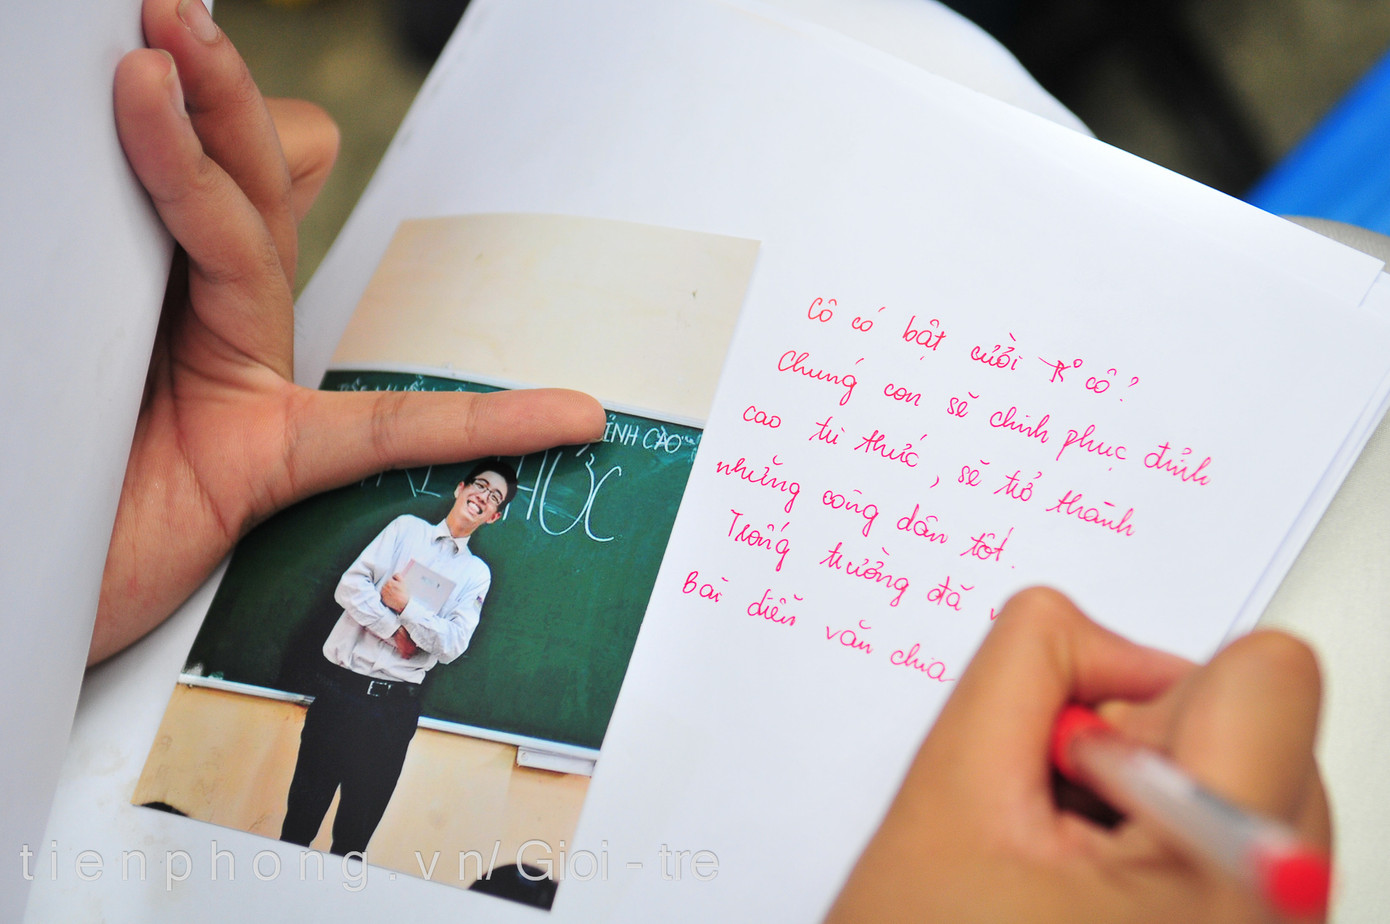 ỈNH CAO
Cô có bật cười ko cô?
Chúng con sẽ chinh phục đỉnh
cao tri thức, sẽ trở thành
những công dân tốt.
Trống trường đã
Bài diễn văn chia
tienphong.vn/Gioi-tre